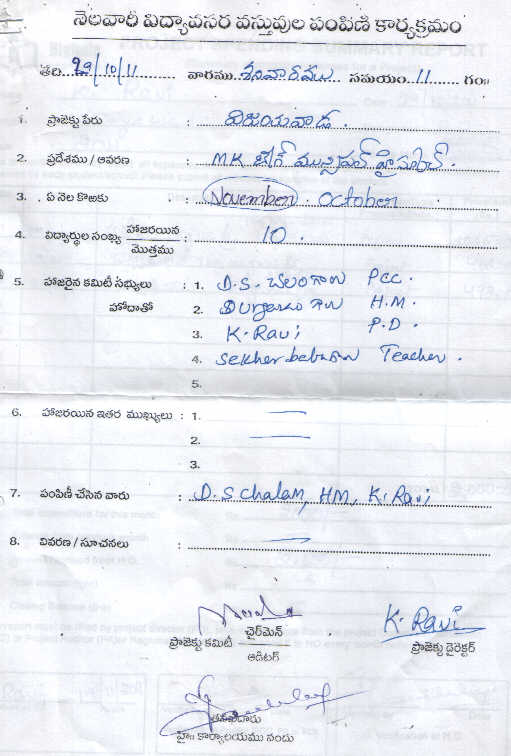 నెలవారీ విద్యావసర వస్తువుల పంపిణి కార్యక్రమం
తేది..29/10/11......... వారము..శనివారము.. సమయం..11.. గం॥
1. ప్రాజెక్టు పేరు : విజయవాడ.
2. ప్రదేశము / ఆవరణ : MK బేగ్ మున్సిపల్ హైస్కూల్.
3. ఏ నెల కొఱకు : November. October
4. విద్యార్థుల సంఖ్య హాజరయిన / మొత్తము : 10.
5. హాజరైన కమిటీ సభ్యులు : 1. D.S. చలంగారు PCC.
హోదాతో 2. గారు H.M.
3. K. Ravi P.D.
4. Sekher babu గారు Teacher.
5.
6. హాజరయిన ఇతర ముఖ్యులు : 1. —
2. —
3.
7. పంపిణీ చేసిన వారు : D. S Chalam, HM, K. Ravi
8. వివరణ / సూచనలు : —
ప్రాజెక్టు కమిటీ ఛైర్‌మెన్ / ఆడిటర్
K. Ravi
ప్రాజెక్టు డైరెక్టర్
తనిఖీదారు
హె॥ కార్యాలయము నందు